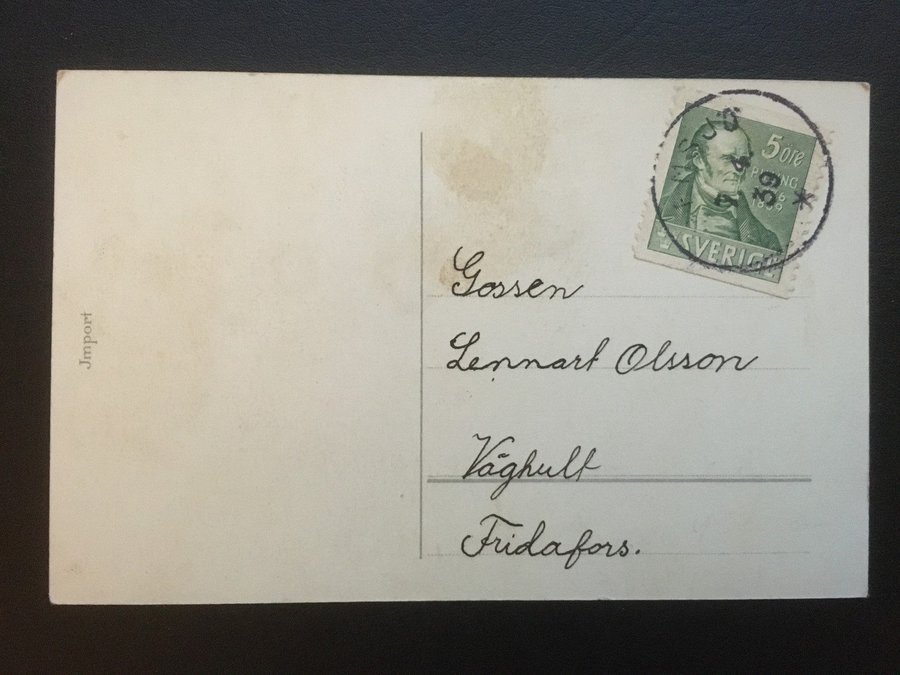 Jmport
5 ÖRE
P.H. LING
SVERIGE
7 4
39
*
Gossen
Lennart Olsson
Våghult
Fridafors.